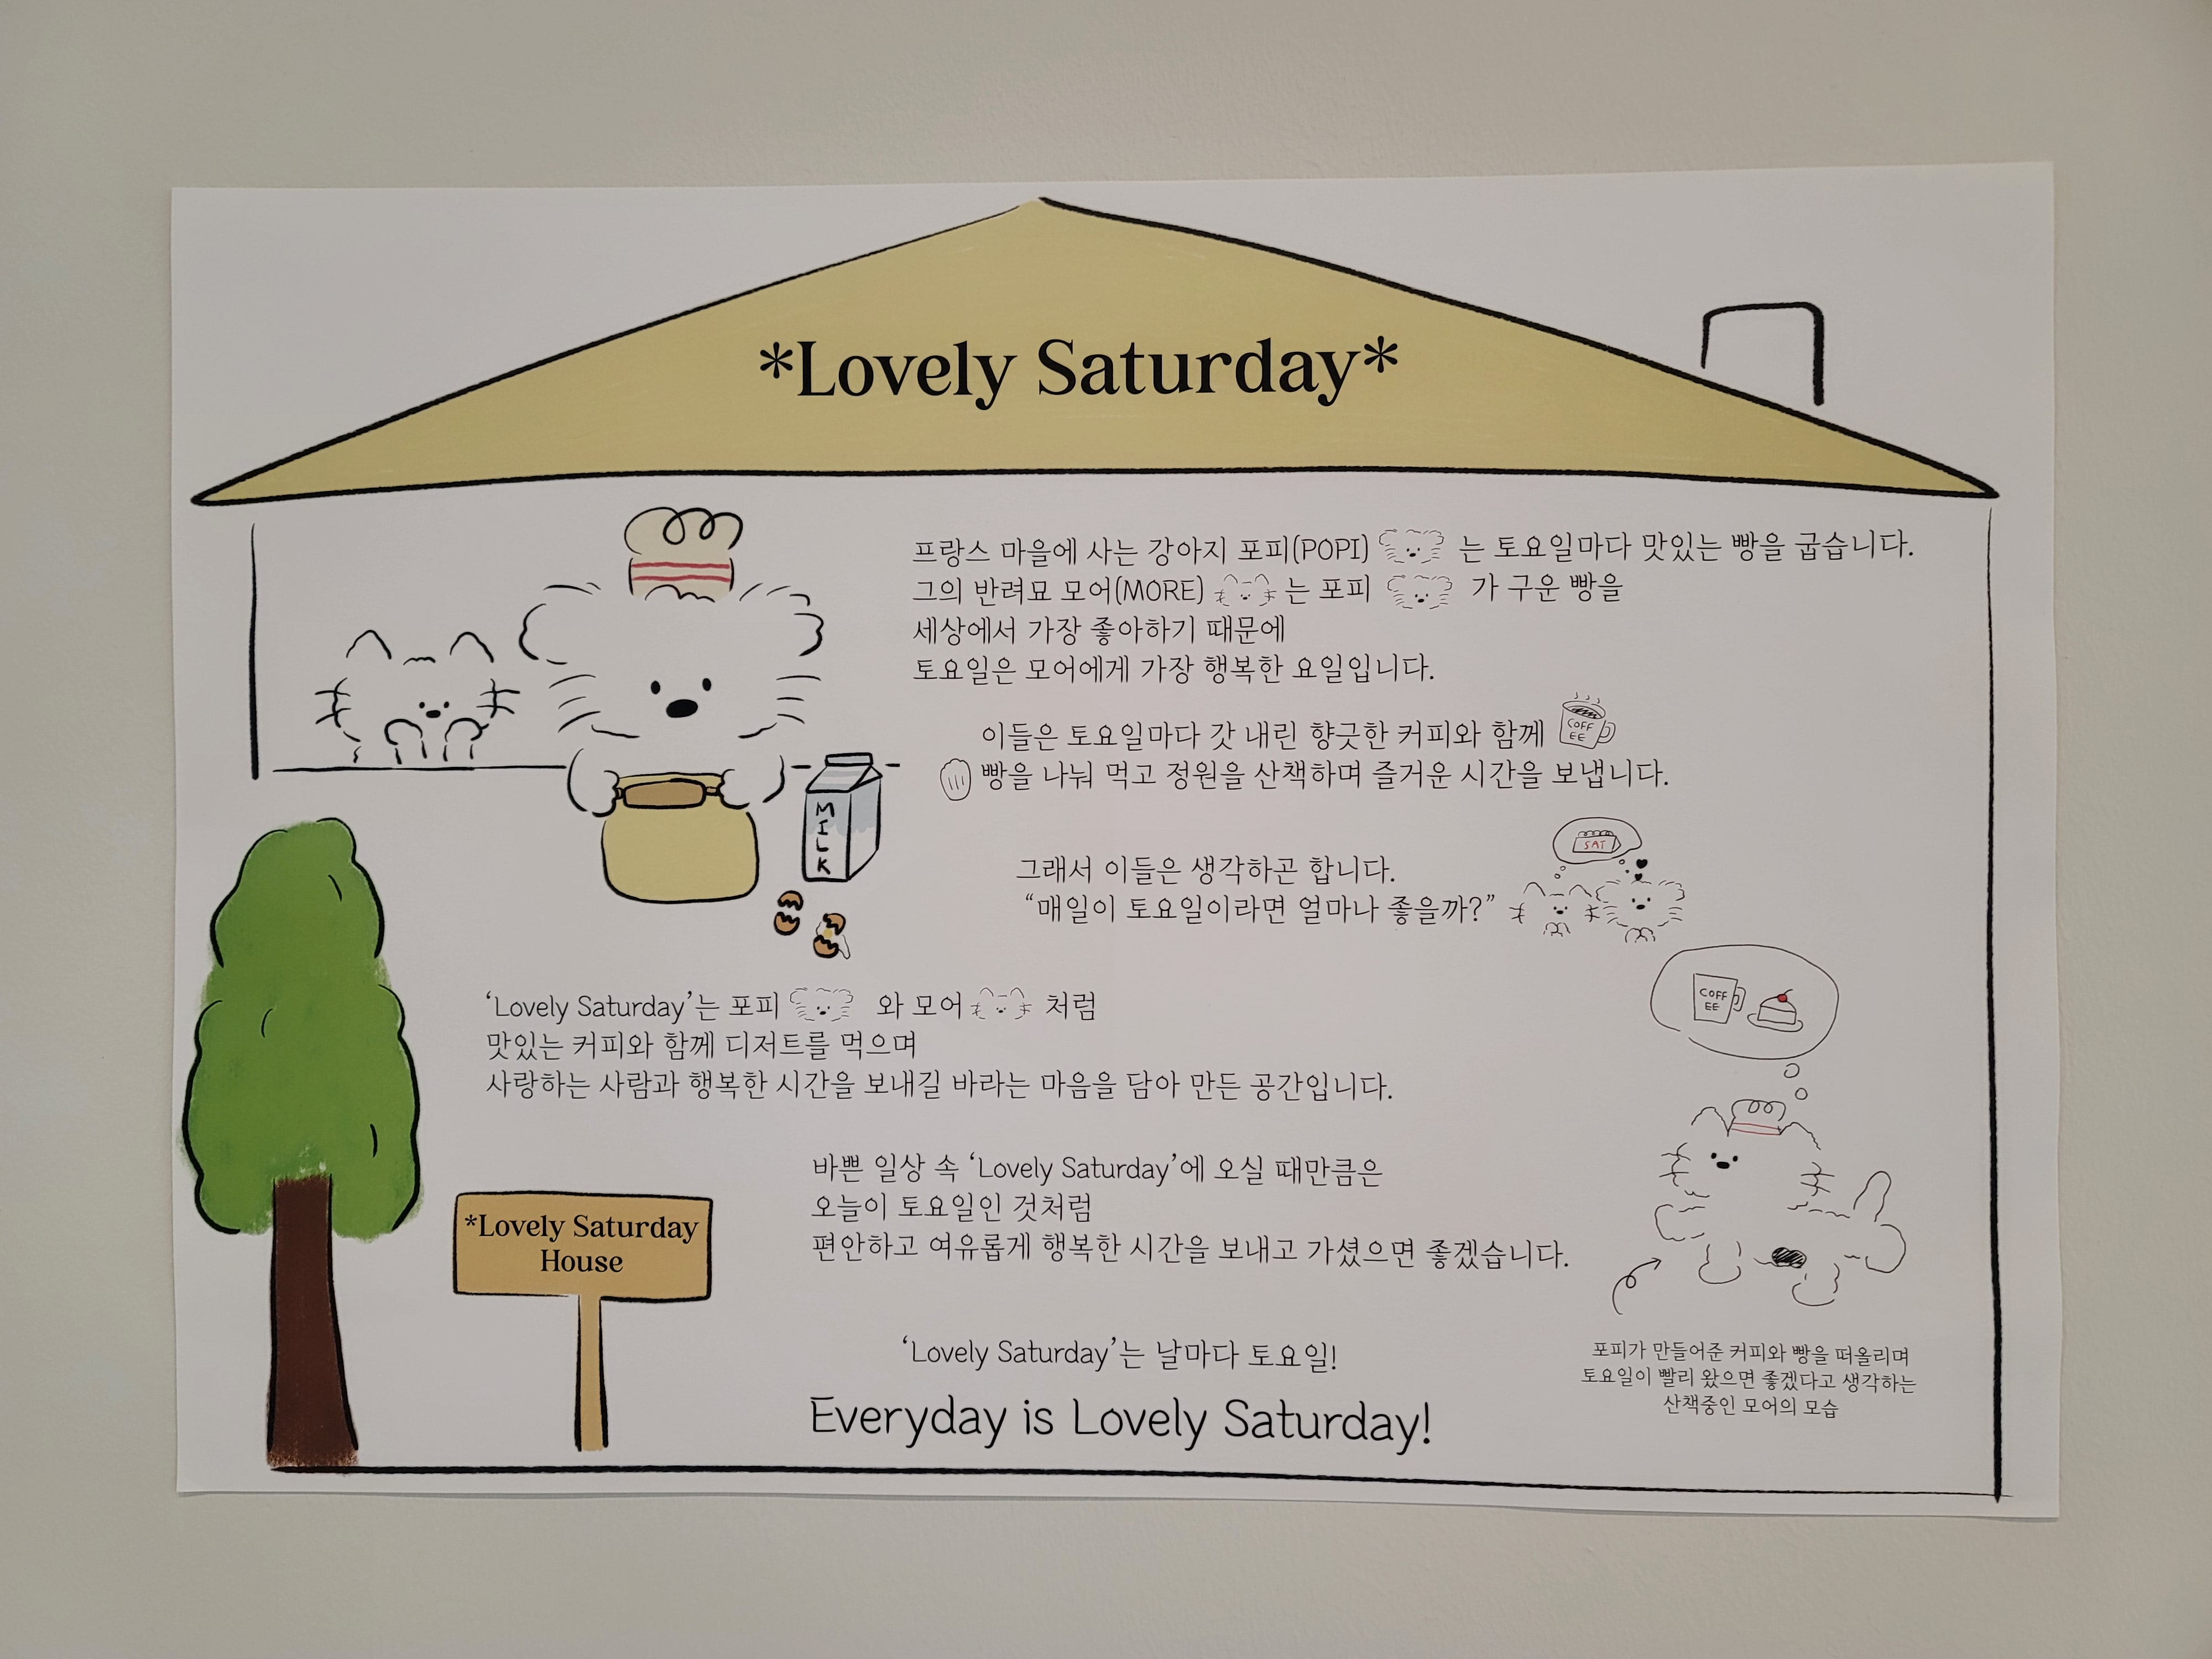 *Lovely Saturday*
프랑스 마을에 사는 강아지 포피(POPI) 는 토요일마다 맛있는 빵을 굽습니다.
그의 반려묘 모어(MORE) 는 포피 가 구운 빵을
세상에서 가장 좋아하기 때문에
토요일은 모어에게 가장 행복한 요일입니다.
이들은 토요일마다 갓 내린 향긋한 커피와 함께
COFF
EE
빵을 나눠 먹고 정원을 산책하며 즐거운 시간을 보냅니다.
MILK
SAT
그래서 이들은 생각하곤 합니다.
“매일이 토요일이라면 얼마나 좋을까?”
COFF
EE
‘Lovely Saturday’는 포피 와 모어 처럼
맛있는 커피와 함께 디저트를 먹으며
사랑하는 사람과 행복한 시간을 보내길 바라는 마음을 담아 만든 공간입니다.
바쁜 일상 속 ‘Lovely Saturday’에 오실 때만큼은
오늘이 토요일인 것처럼
편안하고 여유롭게 행복한 시간을 보내고 가셨으면 좋겠습니다.
*Lovely Saturday
House
‘Lovely Saturday’는 날마다 토요일!
Everyday is Lovely Saturday!
포피가 만들어준 커피와 빵을 떠올리며
토요일이 빨리 왔으면 좋겠다고 생각하는
산책중인 모어의 모습